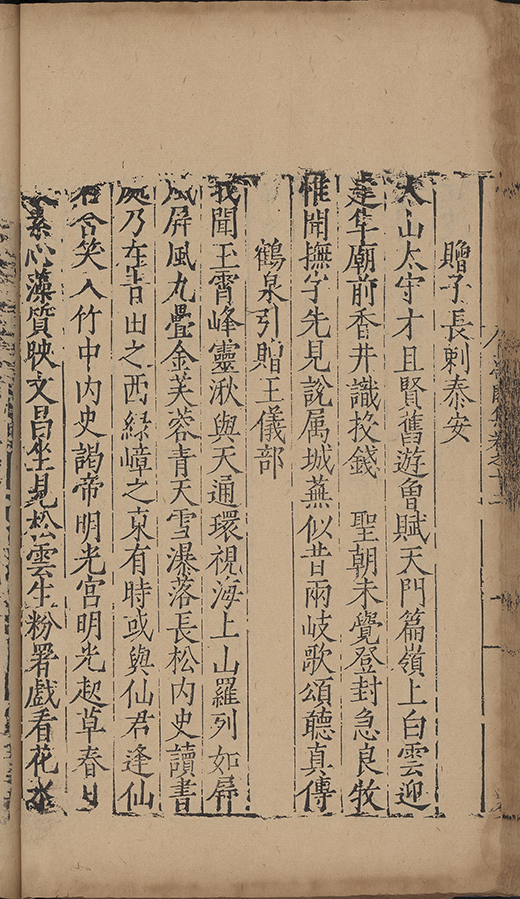 贈子長刺泰安
太山太守才且賢舊遊曾賦天門篇嶺上白雲迎
隼廟前香井識投錢 聖朝未覺登封急良牧
惟聞撫字先見說属城蕪似昔兩岐歌頌聽真傳
鶴泉引贈王儀部
我聞玉霄峰靈湫與天通環視海上山羅列如屏
風屏風九疊金芙蓉青天雪瀑落長松内史讀書
處乃在青田之西綠嶂之東有時或與仙君逢仙
君含笑入竹中内史謁帝明光宮明光起草春日
素心藻質映文昌坐見松雲生粉署戲看花